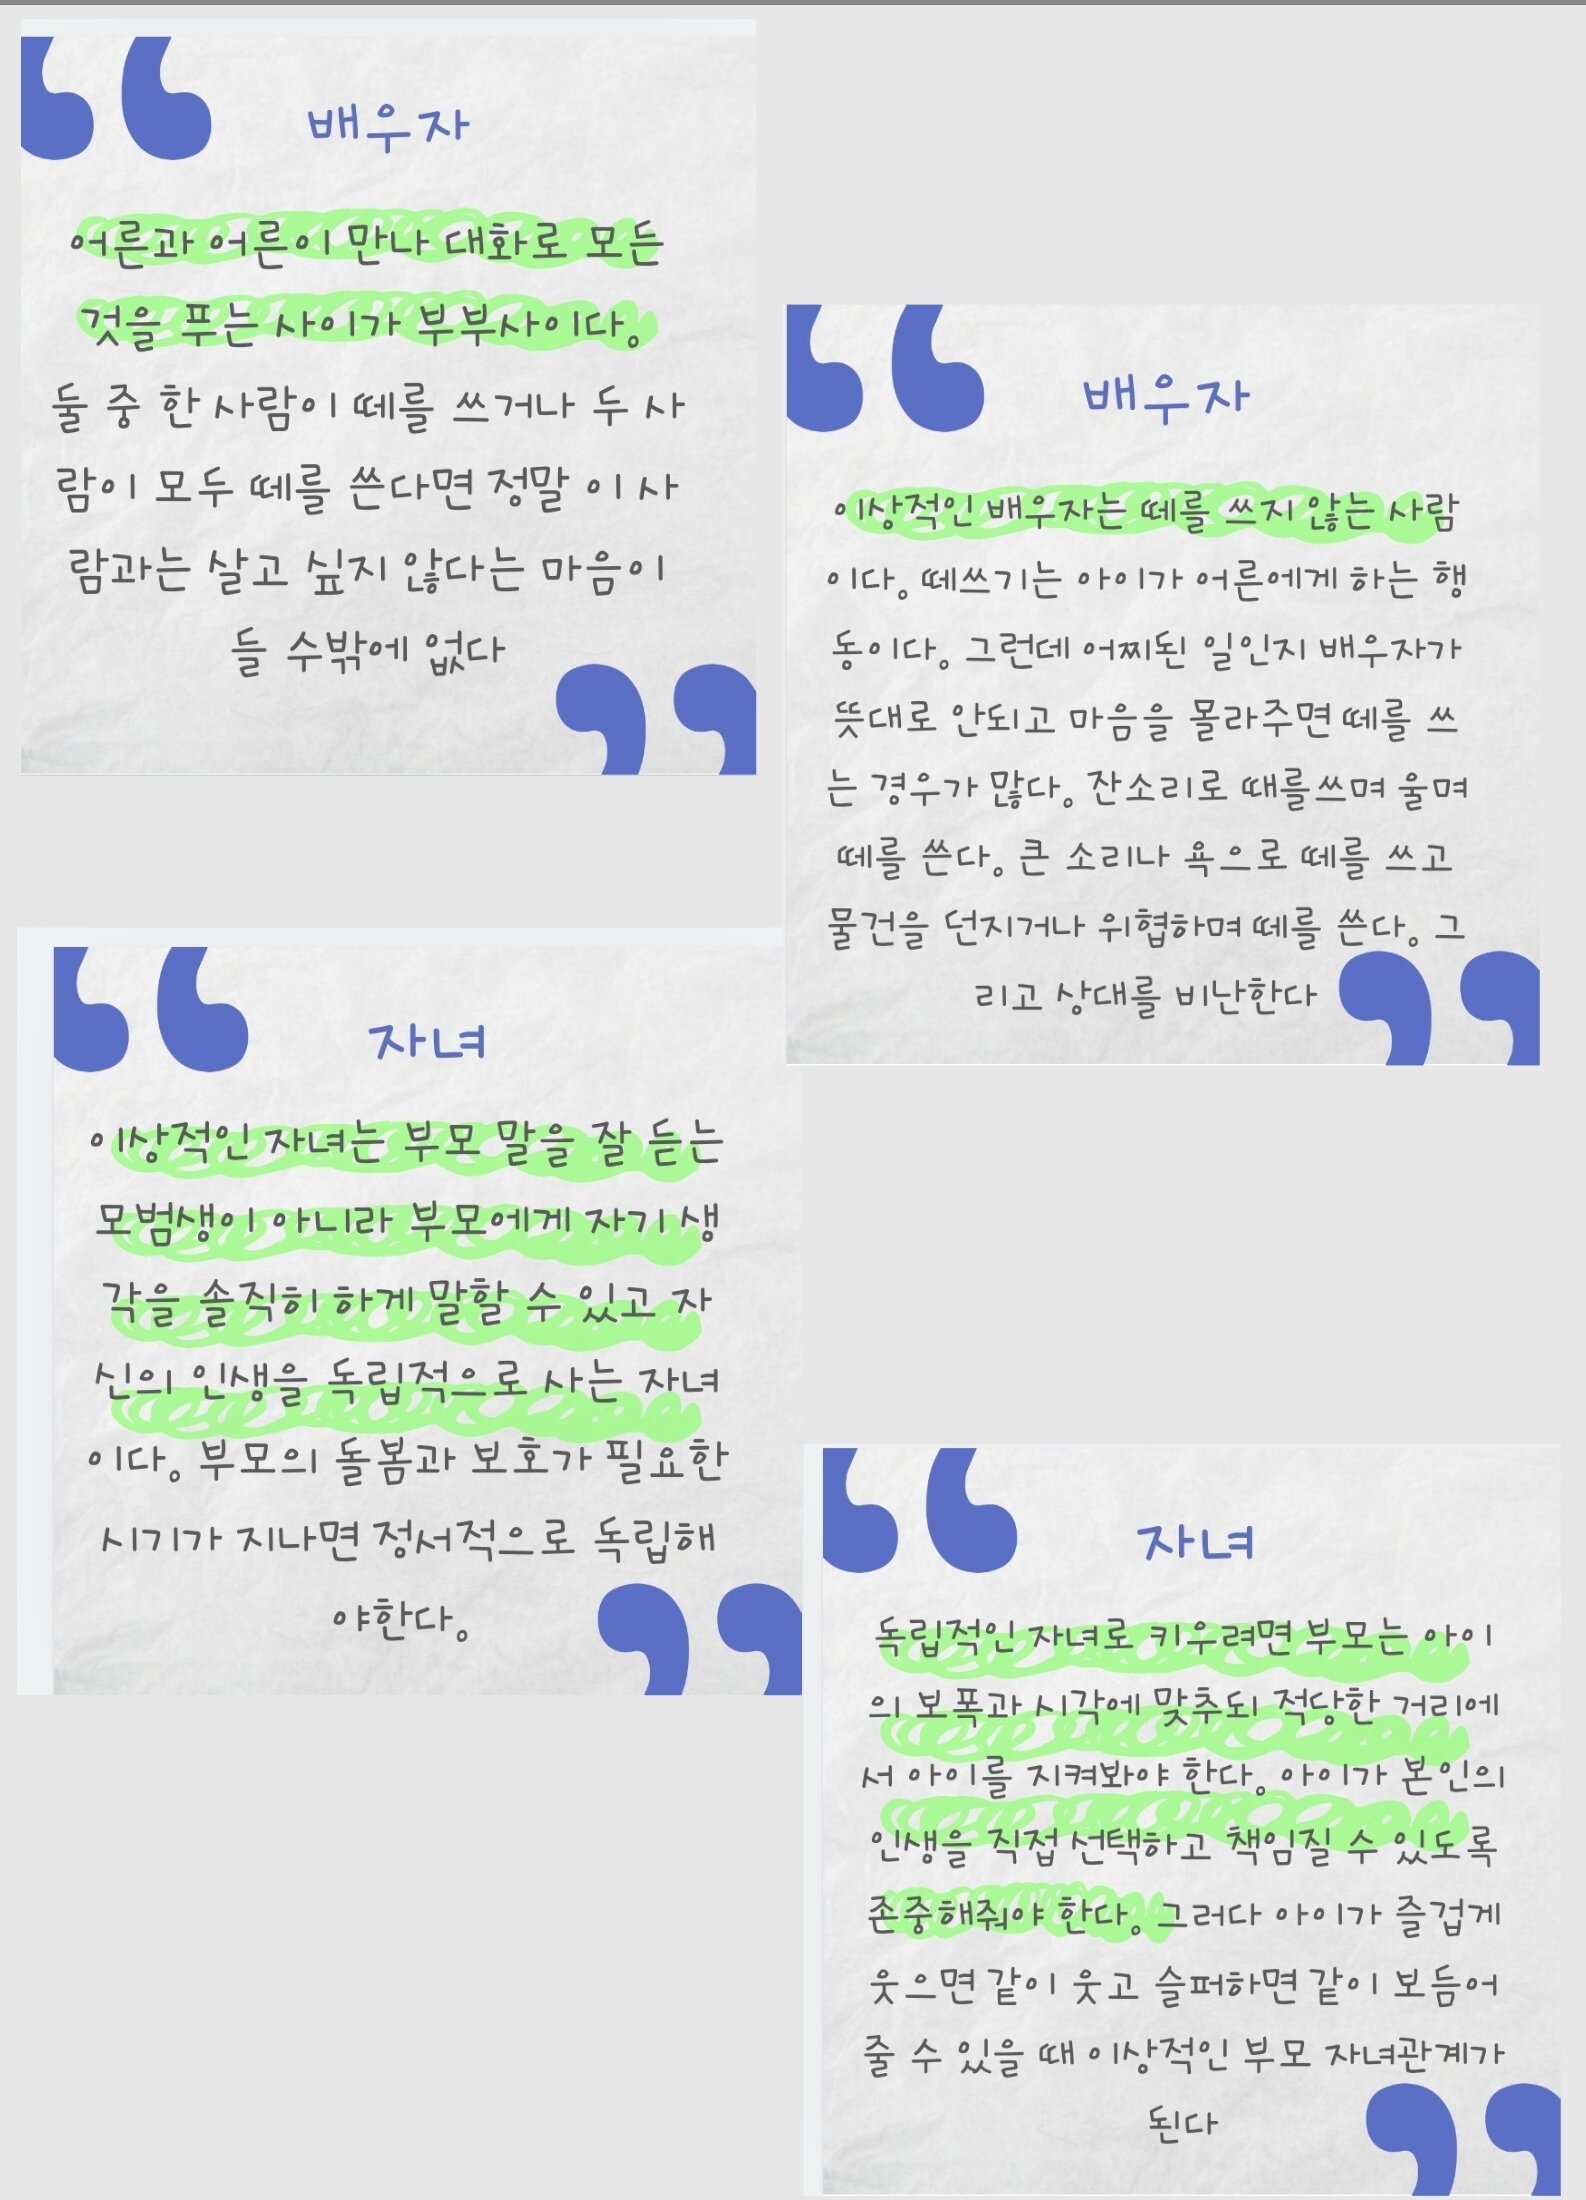 배우자
어른과 어른이 만나 대화로 모든
것을 푸는 사이가 부부사이다.
둘 중 한 사람이 떼를 쓰거나 두 사
람이 모두 떼를 쓴다면 정말 이 사
람과는 살고 싶지 않다는 마음이
들 수밖에 없다
배우자
이상적인 배우자는 떼를 쓰지 않는 사람
이다. 떼쓰기는 아이가 어른에게 하는 행
동이다. 그런데 어찌된 일인지 배우자가
뜻대로 안되고 마음을 몰라주면 떼를 쓰
는 경우가 많다. 잔소리로 때를쓰며 울며
떼를 쓴다. 큰 소리나 욕으로 떼를 쓰고
물건을 던지거나 위협하며 떼를 쓴다. 그
리고 상대를 비난한다
자녀
이상적인 자녀는 부모 말을 잘 듣는
모범생이 아니라 부모에게 자기 생
각을 솔직히 하게 말할 수 있고 자
신의 인생을 독립적으로 사는 자녀
이다. 부모의 돌봄과 보호가 필요한
시기가 지나면 정서적으로 독립해
야한다.
자녀
독립적인 자녀로 키우려면 부모는 아이
의 보폭과 시각에 맞추되 적당한 거리에
서 아이를 지켜봐야 한다. 아이가 본인의
인생을 직접 선택하고 책임질 수 있도록
존중해줘야 한다. 그러다 아이가 즐겁게
웃으면 같이 웃고 슬퍼하면 같이 보듬어
줄 수 있을 때 이상적인 부모 자녀관계가
된다